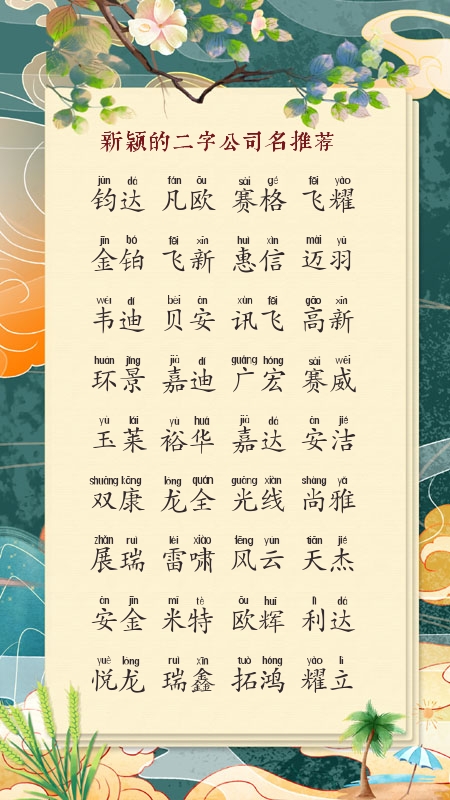 新颖的二字公司名推荐
jūn dá fán ōu sài gé fēi yào
钧达 凡欧 赛格 飞耀
jīn bó fēi xīn huì xìn mài yǔ
金铂 飞新 惠信 迈羽
wéi dí bèi ān xùn fēi gāo xīn
韦迪 贝安 讯飞 高新
huán jǐng jiā dí guǎng hóng sài wēi
环景 嘉迪 广宏 赛威
yù lái yù huá jiā dá ān jié
玉莱 裕华 嘉达 安洁
shuāng kāng lóng quán guāng xiàn shàng yǎ
双康 龙全 光线 尚雅
zhǎn ruì léi xiào fēng yún tiān jié
展瑞 雷啸 风云 天杰
ān jīn mǐ tè ōu huī lì dá
安金 米特 欧辉 利达
yuè lóng ruì xīn tuò hóng yào lì
悦龙 瑞鑫 拓鸿 耀立